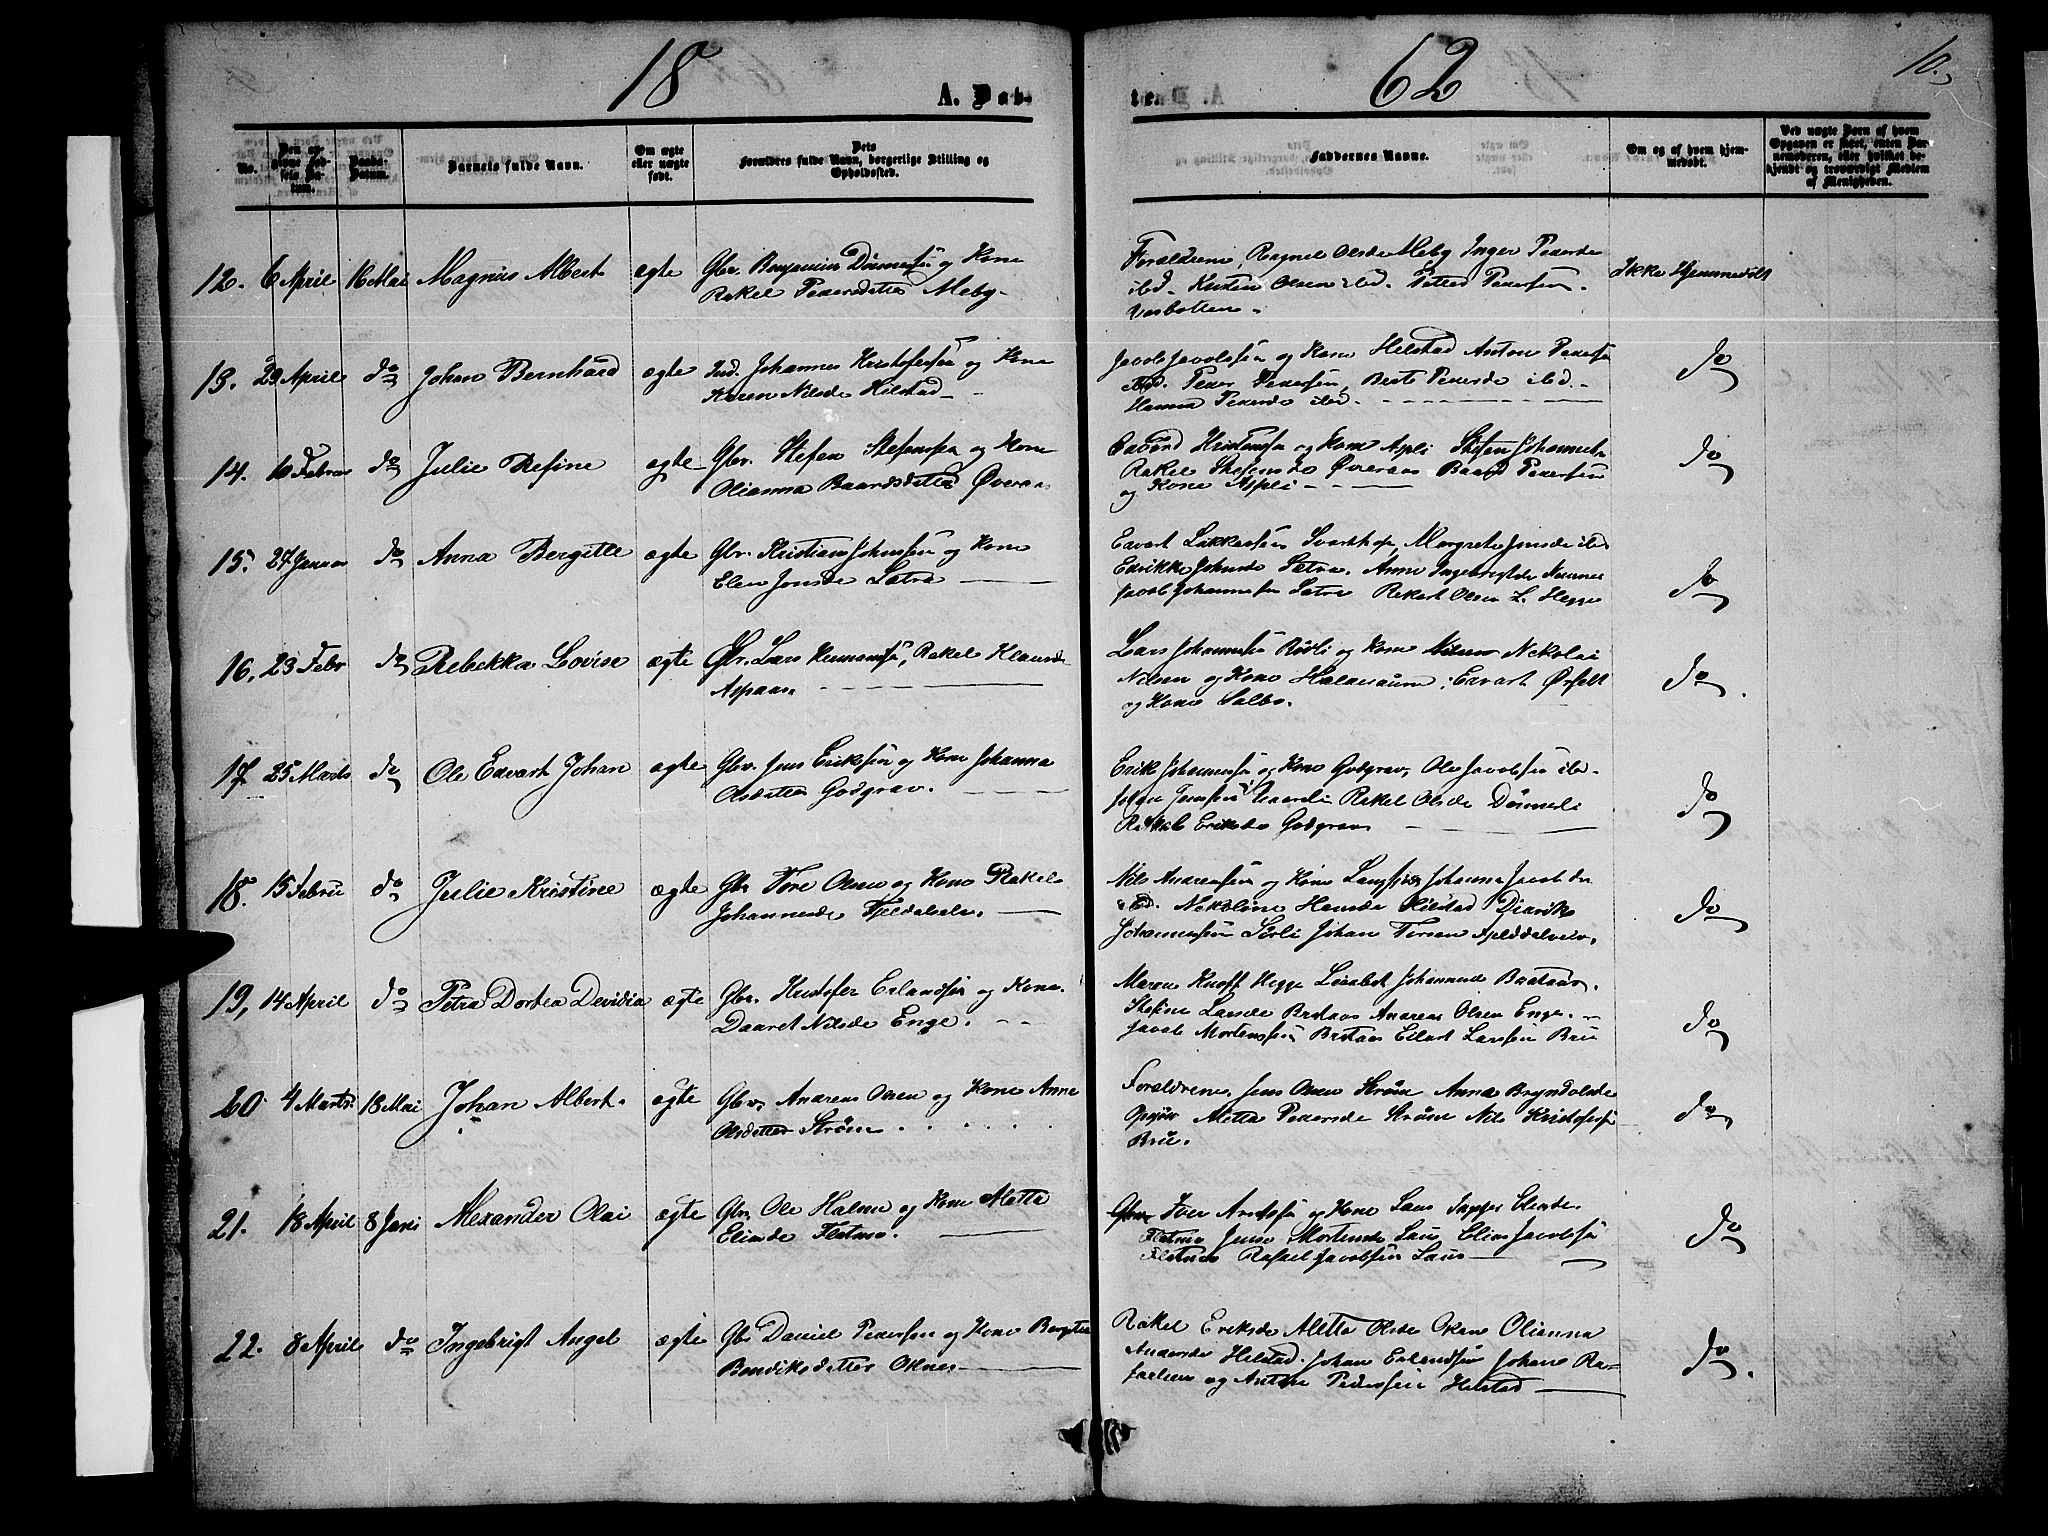 18 62 10.
A. Døb- te.
No.
Den opgivne Fødsels Datum.
Daabs-Datum.
Barnets fulde Navn.
Om ægte eller uægte født.
Dets Forældres fulde Navn, borgerlige Stilling og Opholdssted.
Faddernes Navne.
Om og af hvem hjemmedøbt.
Ved uægte Børn af hvem Opgaven er skeet, enten Barnemoderen, eller hvilket bekjendt og troværdigt Medlem af Menigheden.
12. 6 April 16 Mai Magnus Albert ægte Gbr. Benjamin og Kone
Rakel Pedersdatter Meby.
Forældrene, Ragnel Olsde Meby Inger Pedersde
ibd. Olsen ibd. Petter Pedersen
Ikke Hjemmedøbt
13. 29 April do Johan Bernhard ægte Ind. Johannes Kristofersen og Kone
Karen Nilsde Hilstad
Jacob Jacobsen og Kone Hilstad Anton Peders
ibd. Peder Pedersen, Berte Pedersde ibd.
Hanna Pedersde ibd.
do
14. 10 Februar do Julie Refine ægte Gbr. Stefen Stefensen og Kone
Olianna Baardsdatter Øveraa
Edvard Kristensen og Kone Aspli Stefen Johannesen
Rakel Stefensde Øveraas Baard Pedersen
og Kone Aspli
do
15. 27 Januar do Anna Bergitte ægte Gbr. Kristian Johnsen og Kone
Elen Jonsde Sætre
Edvart Svarthop, Margrete Jonsde ibd
Edrikke Johnsde Sætre. Anne Ingebrigtde
Jacob Johannesen Sætre Rekart Olsen L. Hegge
do
16. 23 Febr do Rebekka Lovise ægte Gbr. Lars Hermansen, Rakel Klausde
Aspaas
Lars Johannesen Rødli og Kone Nekolai
Nilsen og Kone Halvesaune, Edvart Ørfelt
og Kone Salbo.
do.
17. 25 Marts do Ole Edvart Johan ægte Gbr. Jens Eriksen og Kone Johanna
Olsdatter Godgrav.
Erik Johannesen og Kone Godgrav, Ole Jacobsen ibd.
Johan Jensen Rakel Olsde
Rakel Eriksde Godgrav
do
18. 15 Febru do Julie Kristine ægte Gbr Tore Olsen og Kone Rakel
Johannesde Fjeldalveln.
Nils Andreassen og Kone Johanna Jacobsde
ibd. Nekoline Hansde Hilstad Didrik
Johannessen Sørli Johan Torsen
do
19. 14 April do Petra Dortea Devidia ægte Gbr. Kristofer Erlandsen og Kone
Daaret Nilsde Enge.
Maren Knoff Hegge Lisabet Johannesde Brataas.
Stefine Larsde Brataas Andreas Olsen Enge.
Jacob Mortenssen Brataas Edvart Larsen Bru
do
20 4 Marts 18 Mai Johan Albert. ægte Gbr. Andreas Olsen og Kone Anne
Olsdatter Strøm
Forældrene. Jens Olsen Strøm Anna Bryndolsde
Aletta Pedersde Strøm Nils Kristofersen
Bru.
do
21. 18 April 8 Juni Alexander Olai ægte Gbr. Ole Halvor og Kone Aletta
Eliasde Fletmo.
Gbr Iver Arntsen og Kone Laus Eliasde.
Fletmo Jensn Mortensde Laus Elias Jacobsen
Fletmo Rafael Jacobsen Laus
do
22. 8 April do Ingebrigt Angel ægte Gbr Daniel Pedersen og Kone Bergitta
Bendiksdatter Oknes
Rakel Eriksde Aletta Olsde Oknes Olianna
Andersde Hilstad. Johan Erlandsen Johan Ra-
faelsen og Anton Pedersen Hilstad
do.